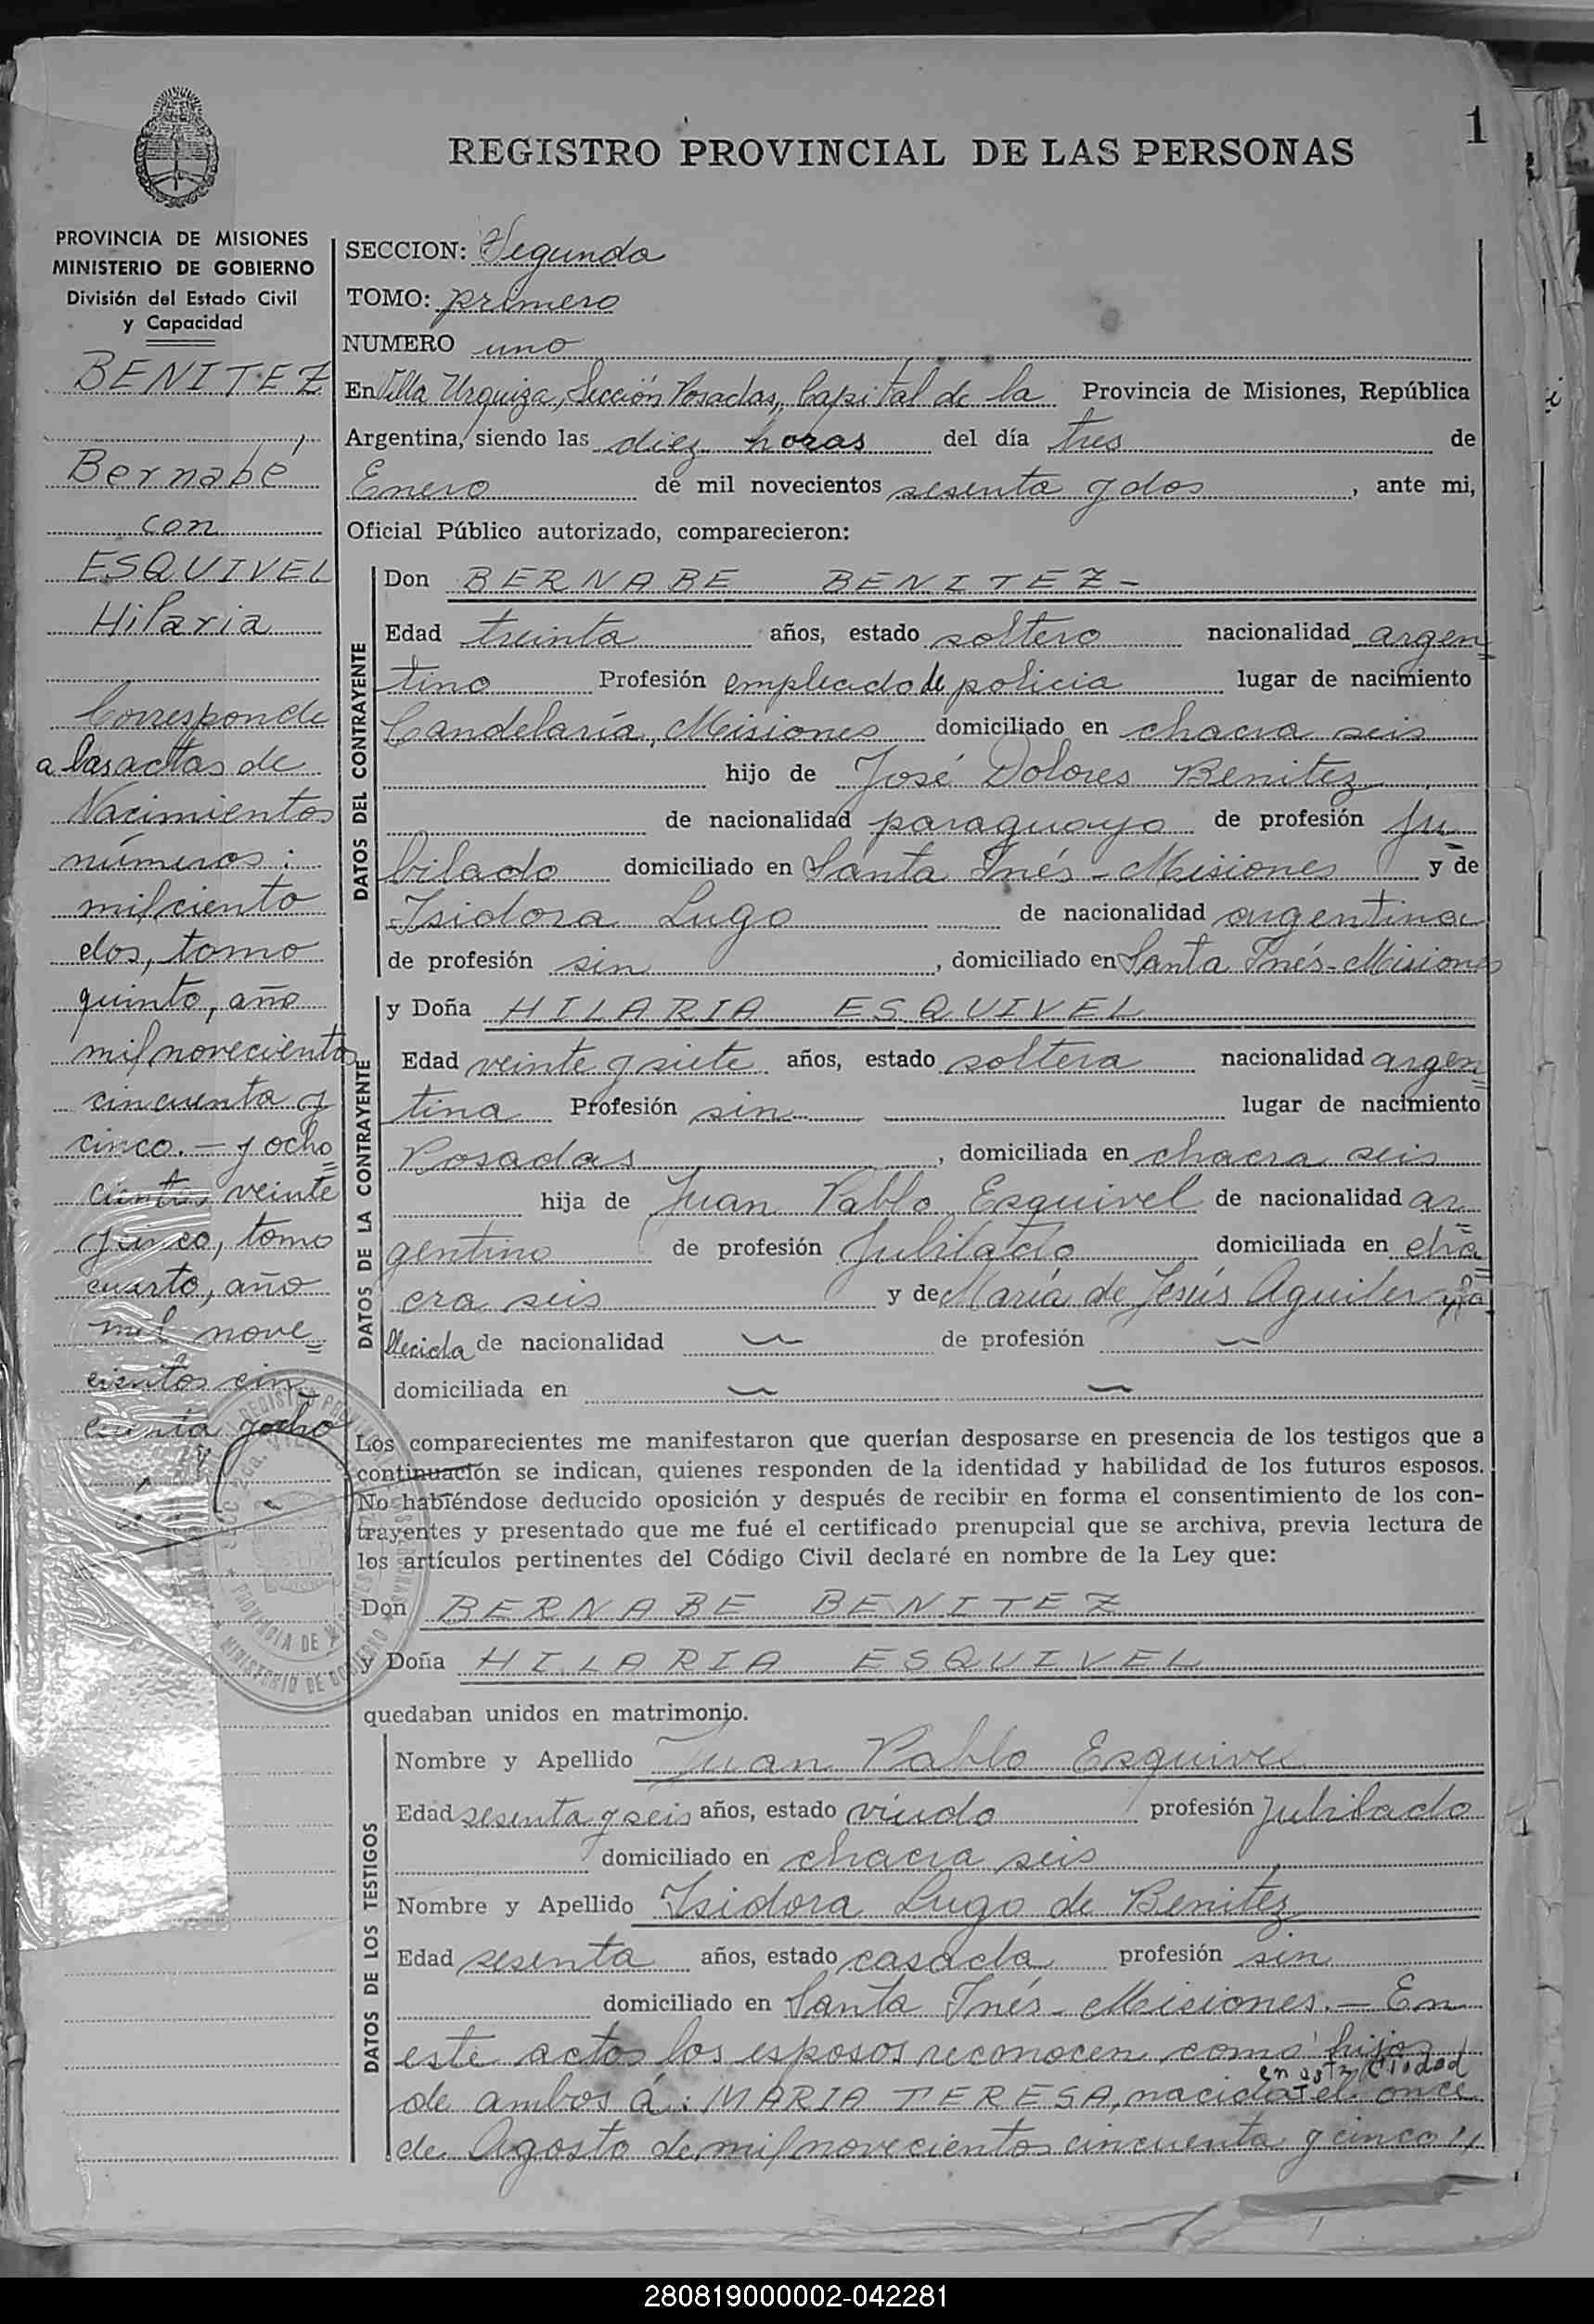 1
REGISTRO PROVINCIAL DE LAS PERSONAS
PROVINCIA DE MISIONES
MINISTERIO DE GOBIERNO
División del Estado Civil
y Capacidad
BENITEZ
Bernabé
con
ESQUIVEL
Hilaria
Corresponde
a las actas de
Nacimientos
números:
mil ciento
dos, tomo
quinto, año
mil novecientos
cincuenta y
cinco.- y ocho
cientos veinte
cinco, tomo
cuarto, año
mil nove
cientos cin
cuenta y ocho
SECCION: Segunda
TOMO: primero
NUMERO uno
En Villa Urquiza, Sección Posadas, Capital de la Provincia de Misiones, República
Argentina, siendo las diez horas del día tres de
Enero de mil novecientos sesenta y dos, ante mi,
Oficial Público autorizado, comparecieron:
DATOS DEL CONTRAYENTE
Don BERNABE BENITEZ-
Edad treinta años, estado soltero nacionalidad argen
tino Profesión empleado de policia lugar de nacimiento
Candelaria, Misiones domiciliado en chacra seis
hijo de José Dolores Benitez
de nacionalidad paraguayo de profesión Ju
bilado domiciliado en Santa Inés-Misiones y de
Isidora Lugo de nacionalidad argentina
de profesión sin, domiciliado en Santa Inés-Misiones
DATOS DE LA CONTRAYENTE
y Doña HILARIA ESQUIVEL
Edad veinte y siete años, estado soltera nacionalidad argen
tina Profesión sin lugar de nacimiento
Posadas, domiciliada en chacra seis
hija de Juan Pablo Esquivel de nacionalidad ar
gentino de profesión Jubilado domiciliada en cha
cra seis y de María de Jesús Aguilera
llecida de nacionalidad de profesión
domiciliada en
Los comparecientes me manifestaron que querían desposarse en presencia de los testigos que a
continuación se indican, quienes responden de la identidad y habilidad de los futuros esposos.
No habiéndose deducido oposición y después de recibir en forma el consentimiento de los con-
trayentes y presentado que me fué el certificado prenupcial que se archiva, previa lectura de
los artículos pertinentes del Código Civil declaré en nombre de la Ley que:
Don BERNABE BENITEZ
y Doña HILARIA ESQUIVEL
quedaban unidos en matrimonio.
DATOS DE LOS TESTIGOS
Nombre y Apellido Juan Pablo Esquivel
Edad sesenta y seis años, estado viudo profesión Jubilado
domiciliado en chacra seis
Nombre y Apellido Isidora Lugo de Benitez
Edad sesenta años, estado casada profesión sin
domiciliado en Santa Inés-Misiones.- En
este acto los esposos reconocen como hijos
en esta Ciudad
de ambos á: MARIA TERESA, nacida el once
de Agosto de mil novecientos cincuenta y cinco y
280819000002-042281